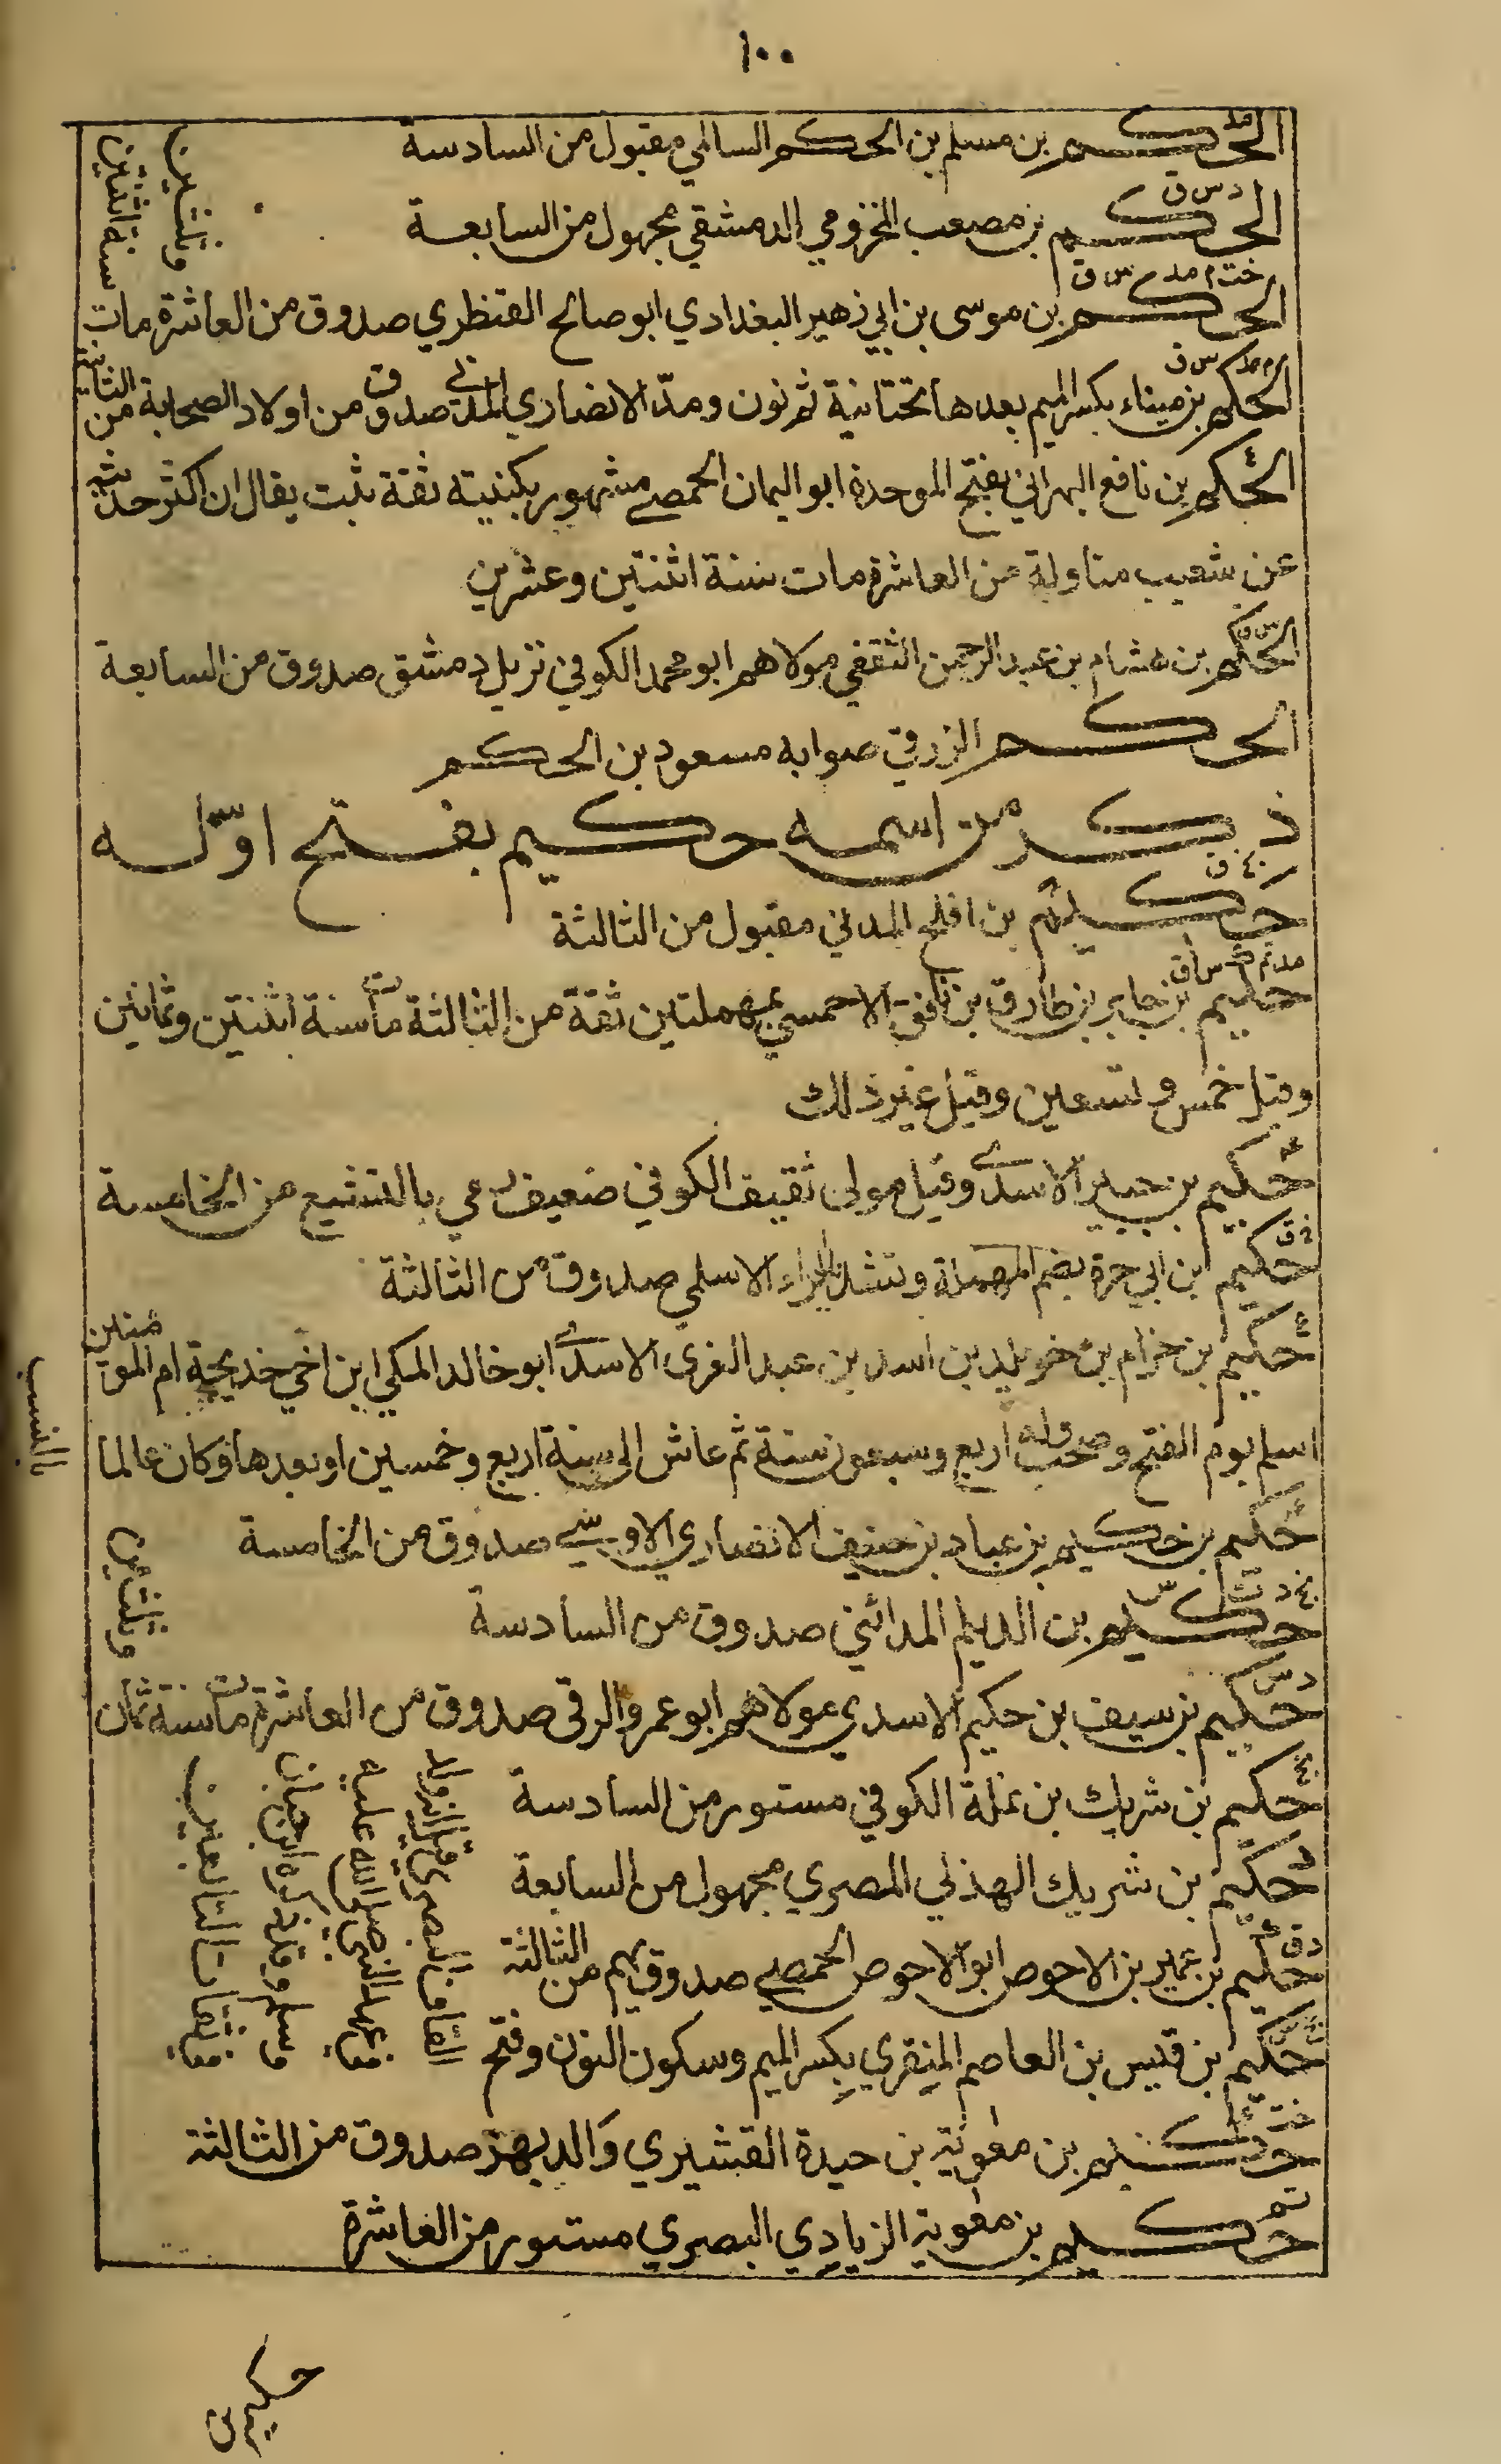 ١٠٠
مد
الحكم بن مسلم بن الحكم السالمي مقبول من السادسة
د س ق
الحكم بن مصعب المخزومي الدمشقي مجهول من السابعة
خت م مد س ق
الحكم بن موسى بن ابي زهير البغدادي ابو صالح القنطري صدوق من العاشرة مات
سنة اثنتين
وثلثين
م مد س ق
الحكم بن ميناء بكسر الميم بعدها تحتانية ثم نون ومدّ الانصاري المدني صدوق من اولاد الصحابة من الثانية
ع
الحكم بن نافع البهراني بفتح الموحدة ابو اليمان الحمصي مشهور بكنيته ثقة ثبت يقال ان اكثر حديثه
عن شعيب مناولة من العاشرة مات سنة اثنتين وعشرين
س ق
الحكم بن هشام بن عبد الرحمن الثقفي مولاهم ابو محمد الكوفي نزيل دمشق صدوق من السابعة
الحكم الزرقي صوابه مسعود بن الحكم
ذكر من اسمه حكيم بفتح اوّله
بخ ق
حكيم بن افلح المدني مقبول من الثالثة
مد تم س ق
حكيم بن جابر بن طارق بن الاحمسي بمهملتين ثقة من الثالثة مات سنة اثنتين وثمانين
وقيل خمس وتسعين وقيل غير ذلك
حكيم بن جبير الاسدي وقيل مولى ثقيف الكوفي ضعيف رمي بالتشيع من الخامسة
ق
حكيم ابن ابي حرة بضم المهملة وتشديد الراء الاسلمي صدوق من الثالثة
ع
حكيم بن حزام بن خويلد بن اسد بن عبد العزى الاسدي ابو خالد المكي ابن اخي خديجة ام المومنين
اسلم يوم الفتح وصحب وله اربع وسبعون سنة ثم عاش الى سنة اربع وخمسين او بعدها وكان عالما
بالنسب
حكيم بن حكيم بن عباد بن حنيف الانصاري الاوسي صدوق من الخامسة
بخ د ت س
حكيم بن الديلم المدائني صدوق من السادسة
د س
حكيم بن سيف بن حكيم الاسدي مولاهم ابو عمرو الرقي صدوق من العاشرة مات سنة ثمان
وثلثين
حكيم بن شريك بن نملة الكوفي مستور من السادسة
د
حكيم بن شريك الهذلي المصري مجهول من السابعة
د ق
حكيم بن عمير بن الاحوص ابو الاحوص الحمصي صدوق يهم من الثالثة
حكيم بن قيس بن العاصم المنقري بكسر الميم وسكون النون وفتح
القاف البصري قيل انه ولد
في عهد النبي صلى الله عليه
وسلم وذكره ابن حبان
في ثقات التابعين
خت
حكيم بن معوية بن حيدة القشيري والد بهز صدوق من الثالثة
تم
حكيم بن معوية الزيادي البصري مستور من العاشرة
حكيم بن